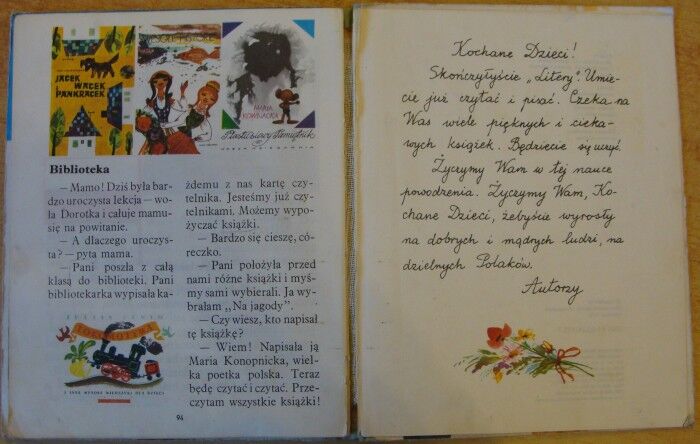 JACEK
WACEK
i PANKRACEK
WESOŁE HISTORIE
MARIA
KOWNACKA
Plastusiowy Pamiętnik
Biblioteka
— Mamo! Dziś była bar-
dzo uroczysta lekcja — wo-
ła Dorotka i całuje mamu-
się na powitanie.
— A dlaczego uroczys-
ta? — pyta mama.
— Pani poszła z całą
klasą do biblioteki. Pani
bibliotekarka wypisała ka-
żdemu z nas kartę czy-
telnika. Jesteśmy już czy-
telnikami. Możemy wypo-
życzać książki.
— Bardzo się cieszę, có-
reczko.
— Pani położyła przed
nami różne książki i myś-
my sami wybierali. Ja wy-
brałam „Na jagody".
— Czy wiesz, kto napisał
tę książkę?
— Wiem! Napisała ją
Maria Konopnicka, wiel-
ka poetka polska. Teraz
będę czytać i czytać. Prze-
czytam wszystkie książki!
JULIAN TUWIM
LOKOMOTYWA
I INNE WESOŁE WIERSZYKI DLA DZIECI
94
Kochane Dzieci!
Skończyłyście „Litery". Umie-
cie już czytać i pisać. Czeka na
Was wiele pięknych i cieka-
wych książek. Będziecie się uczyć.
Życzymy Wam w tej nauce
powodzenia. Życzymy Wam, Ko-
chane Dzieci, żebyście wyrosły
na dobrych i mądrych ludzi, na
dzielnych Polaków.
Autorzy